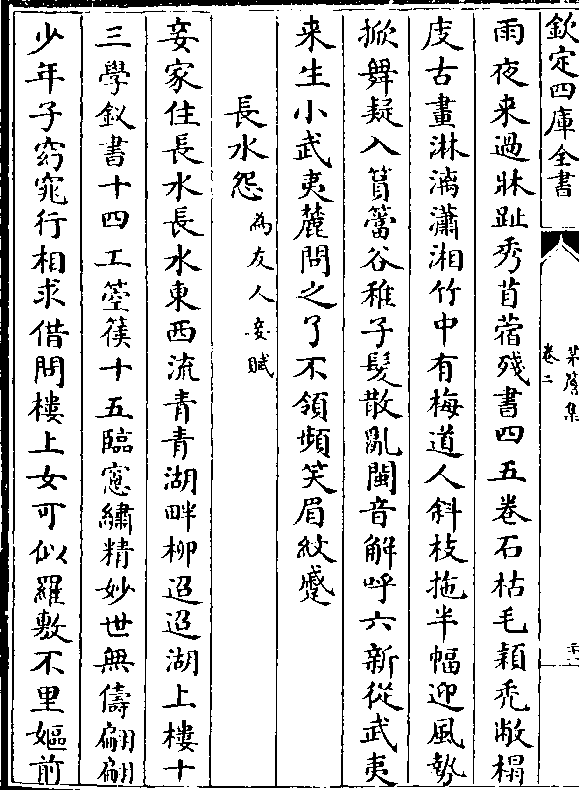 欽定四庫全書
卷二
雨夜来過牀趾秀苜蓿殘書四五卷石枯毛穎禿敝榻
庋古畫淋漓瀟湘竹中有梅道人斜枝拖半幅迎風勢
掀舞疑入篔簹谷稚子髮散亂閩音解呼六新從武夷
来生小武夷麓問之了不領頻笑眉紋蹙
長水怨為友人妾賦
妾家住長水長水東西流青青湖畔柳迢迢湖上樓十
三學釵書十四工箜篌十五臨窻繡精妙世無儔翩翩
少年子窈窕行相求借問樓上女可似羅敷不里嫗前